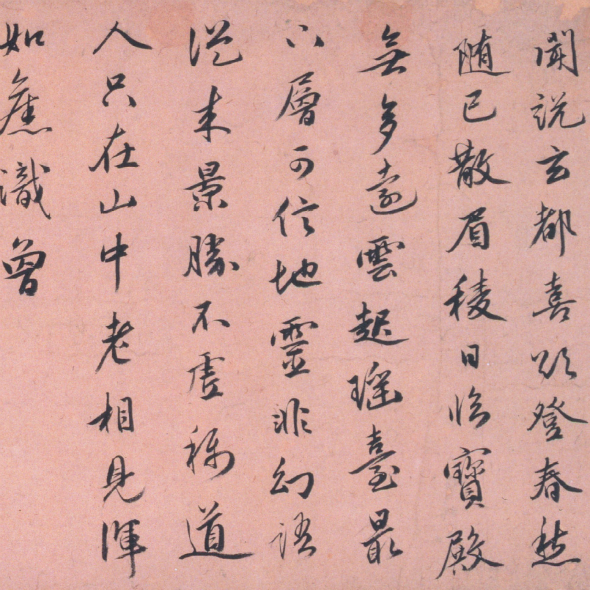 聞說玄都喜欲登春愁
隨已散眉稜日临寶殿
無多遠雲起瑶臺最
上層可信地靈非幻語
從来景勝不虛称道
人只在山中老相見渾
如舊識曾